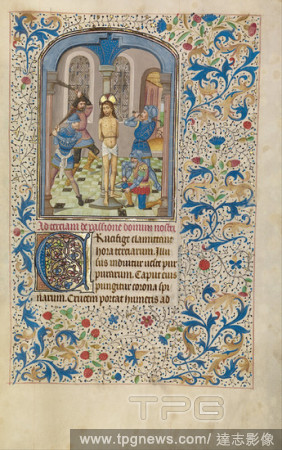 Ad terciam de passione domini nostri
Crucifige clamitant
hora terciarum. Illu
sus induitur veste pur
purarum. Caput eius
pungitur corona spi
narum. Crucem portat humeris ad
TPG
www.tpgnews.com/達志影像